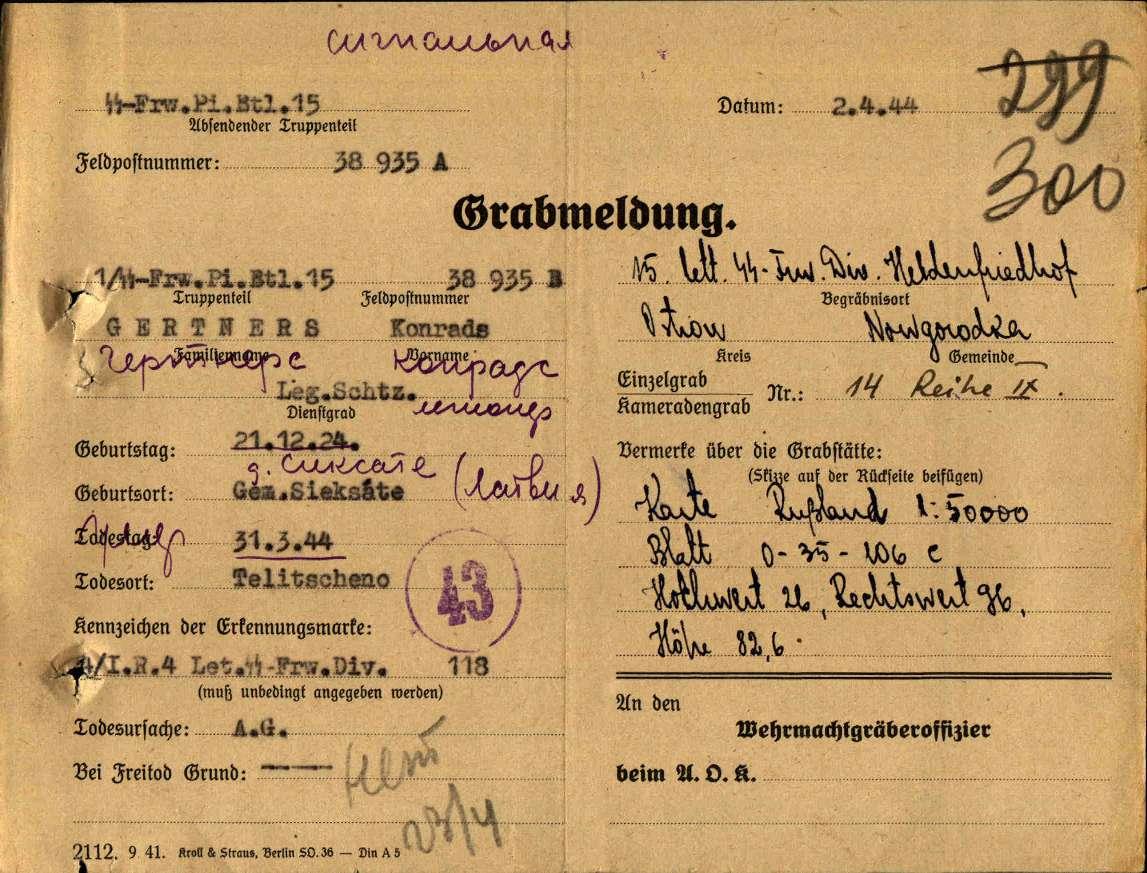 сигнальная
299
300
ᛋᛋ-Frw.Pi.Btl.15
Absendender Truppenteil
Datum: 2.4.44
Feldpostnummer: 38 935 A
Grabmeldung.
1/ᛋᛋ-Frw.Pi.Btl.15 38 935 B
Truppenteil Feldpostnummer
GERTNERS Konrads
Familienname Vorname
Гертнерс Конрадс
Leg.Schtz.
Dienstgrad
Geburtstag: 21.12.24.
д. Сиксате (Латвия)
Geburtsort: Gem.Sieksāte
Todestag: 31.3.44
Todesort: Telitscheno
43
Kennzeichen der Erkennungsmarke:
4/I.R.4 Let.ᛋᛋ-Frw.Div. 118
(muß unbedingt angegeben werden)
Todesursache: A.G.
Bei Freitod Grund: —
23/4
2112. 9 41. Kroll & Straus, Berlin SO. 36 — Din A 5
15. lett. ᛋᛋ-Frw. Div. Heldenfriedhof
Begräbnisort
Ostrow Nowgorodka
Kreis Gemeinde
Einzelgrab
Kameradengrab
Nr.: 14 Reihe IX.
Vermerke über die Grabstätte:
(Skizze auf der Rückseite beifügen)
Karte Rußland 1:50000
Blatt O-35-106 C
Hochwert 26, Rechtswert 96,
Höhe 82,6.
An den
Wehrmachtgräberoffizier
beim A.O.K.